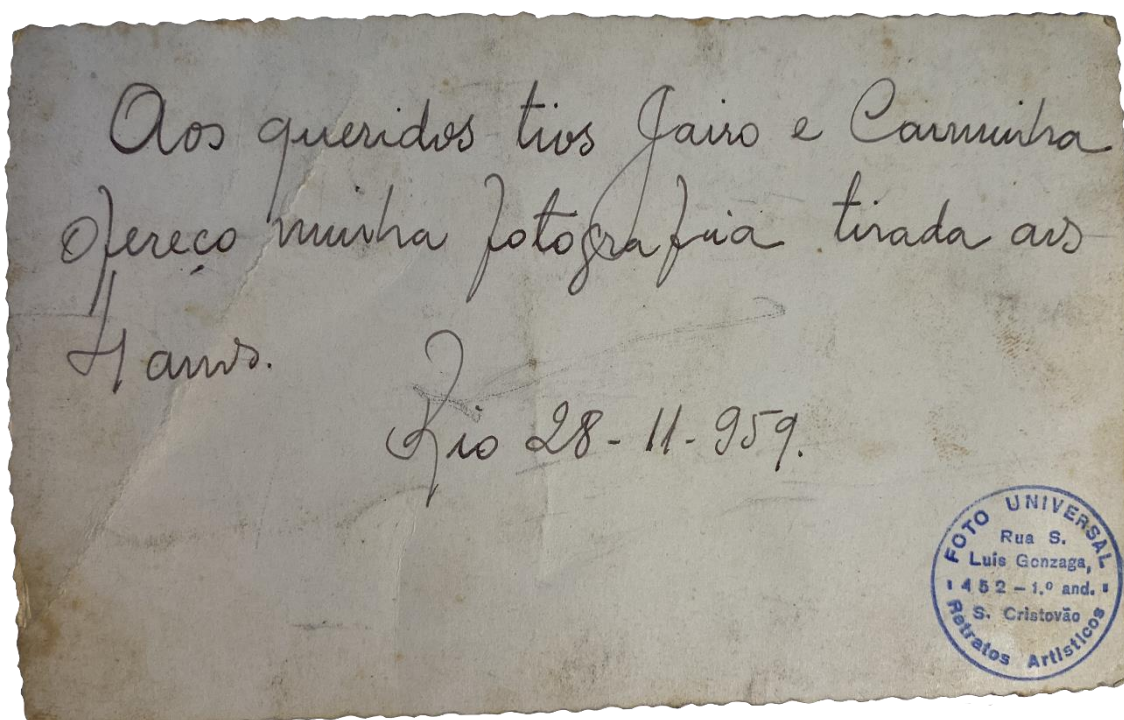 Aos queridos tios Jairo e Carminha
ofereço minha fotografia tirada aos
4 anos.
Rio 28-11-959.
FOTO UNIVERSAL
Rua S.
Luís Gonzaga,
452 – 1.º and.
S. Cristovão
Retratos Artísticos